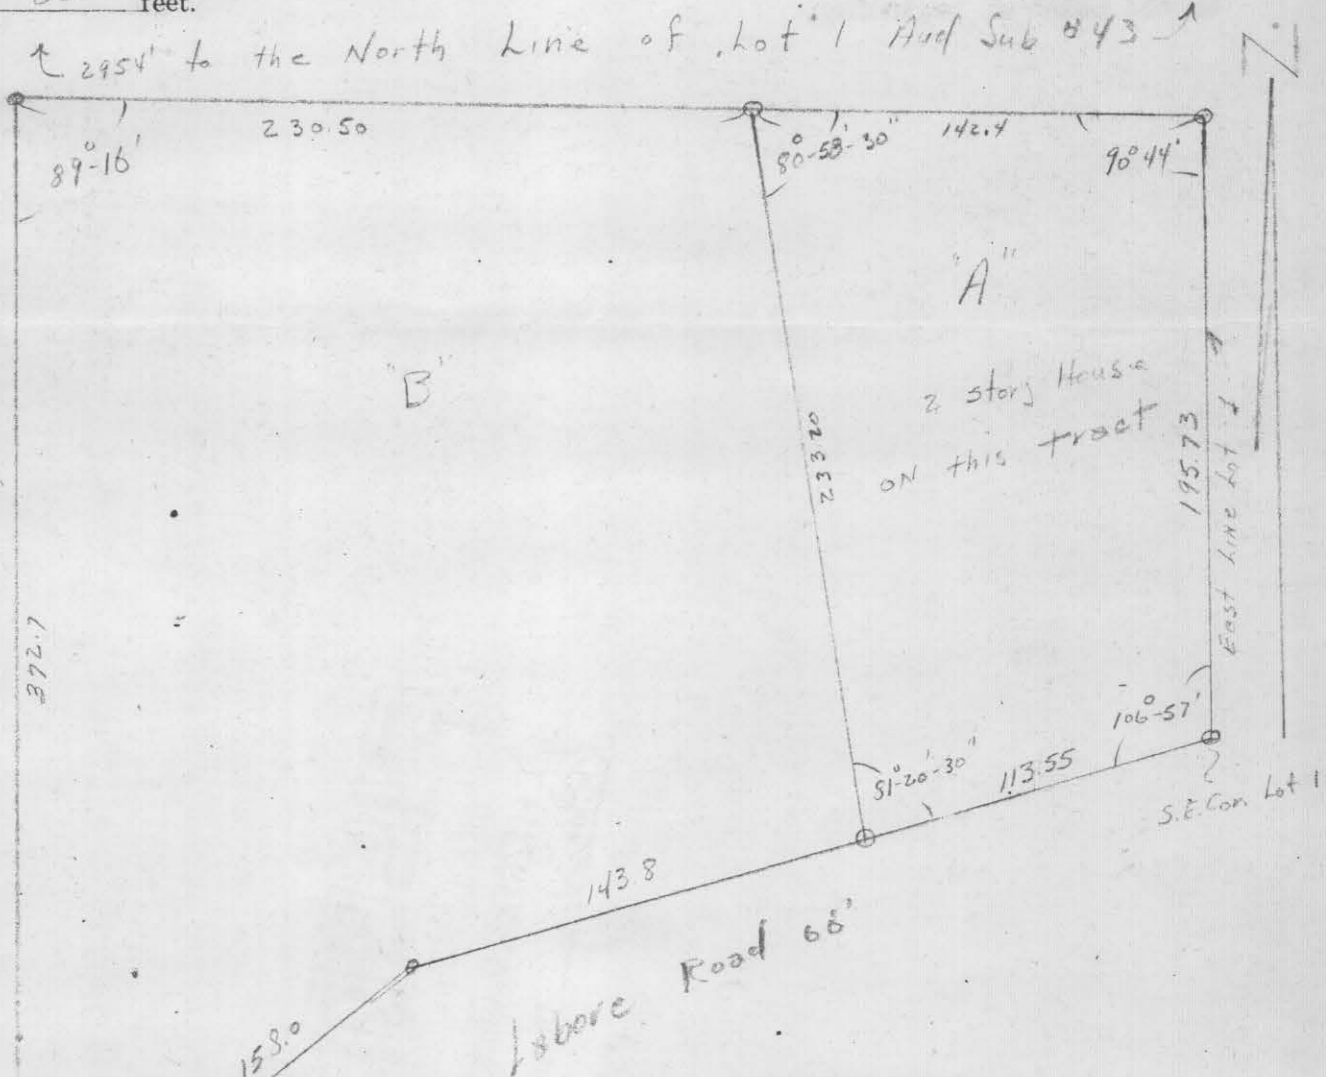 feet.
2954' to the North Line of Lot 1 Aud Sub #43
N
230.50
142.4
89°-16'
80°-58'-30"
90°44'
"A"
"B"
2 story House
ON this tract
233.20
195.73
East Line Lot 1
372.7
106°-57'
81°-20'-30"
113.55
S.E. Cor. Lot 1
143.8
Labore Road 66'
158.0